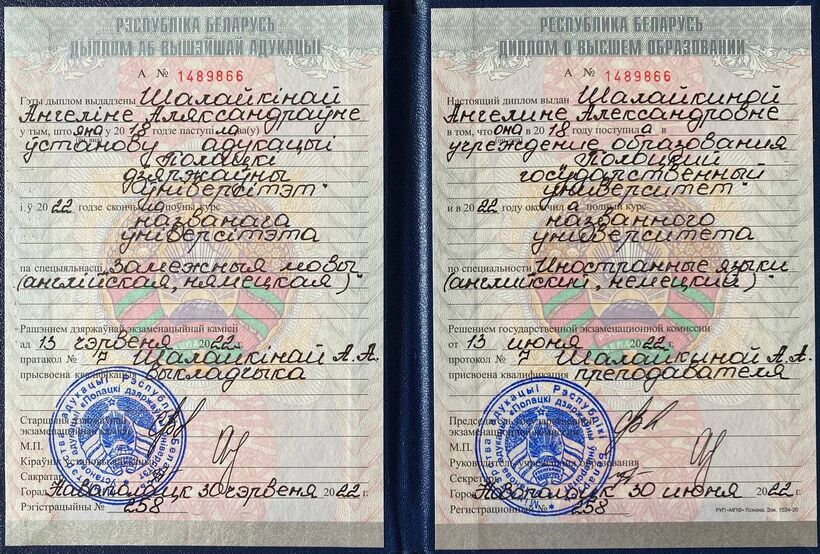 РЭСПУБЛІКА БЕЛАРУСЬ
ДЫПЛОМ АБ ВЫШЭЙШАЙ АДУКАЦЫІ
А № 1489866
Гэты дыплом выдадзены Шалайкінай
Ангеліне Аляксандраўне
у тым, што яна у 2018 годзе паступіла ва(у)
ўстанову адукацыі
"Полацкі
дзяржаўны
ўніверсітэт"
і ў 2022 годзе скончыла поўны курс
названага
ўніверсітэта
па спецыяльнасці "Замежныя мовы
(англійская, нямецкая)"
Рашэннем дзяржаўнай экзаменацыйнай камісіі
ад 13 чэрвеня 2022 г.
пратакол № 7 Шалайкінай А.А.
прысвоена кваліфікацыя
выкладчыка
Старшыня дзяржаўнай
экзаменацыйнай камісіі
М.П.
Кіраўнік установы адукацыі
Сакратар
Горад Наваполацк 30 чэрвеня 2022 г.
Рэгістрацыйны № 258
РЕСПУБЛИКА БЕЛАРУСЬ
ДИПЛОМ О ВЫСШЕМ ОБРАЗОВАНИИ
А № 1489866
Настоящий диплом выдан Шалайкиной
Ангелине Александровне
в том, что она в 2018 году поступила в
учреждение образования
"Полоцкий
государственный
университет"
и в 2022 году окончила полный курс
названного
университета
по специальности "Иностранные языки
(английский, немецкий)"
Решением государственной экзаменационной комиссии
от 13 июня 2022 г.
протокол № 7 Шалайкиной А.А.
присвоена квалификация
преподавателя
Председатель государственной
экзаменационной комиссии
М.П.
Руководитель учреждения образования
Секретарь
Город Новополоцк 30 июня 2022 г.
Регистрационный № 258
РУП «МПФ» Гознака. Зак. 1534-20